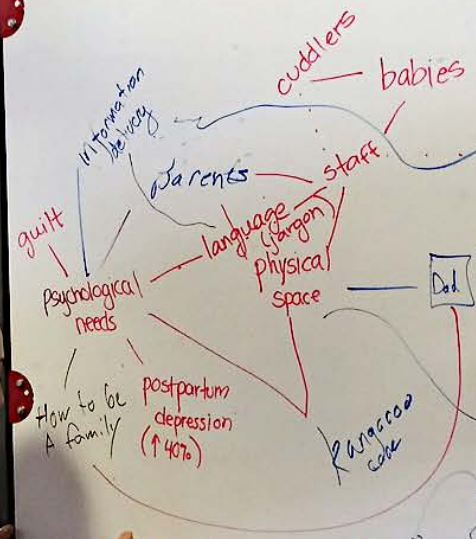 cuddlers
babies
information
delivery
Parents
staff
guilt
language
(jargon)
physical
space
psychological
needs
Dad
How to be
A family
postpartum
depression
(↑40%)
Kangaroo
care